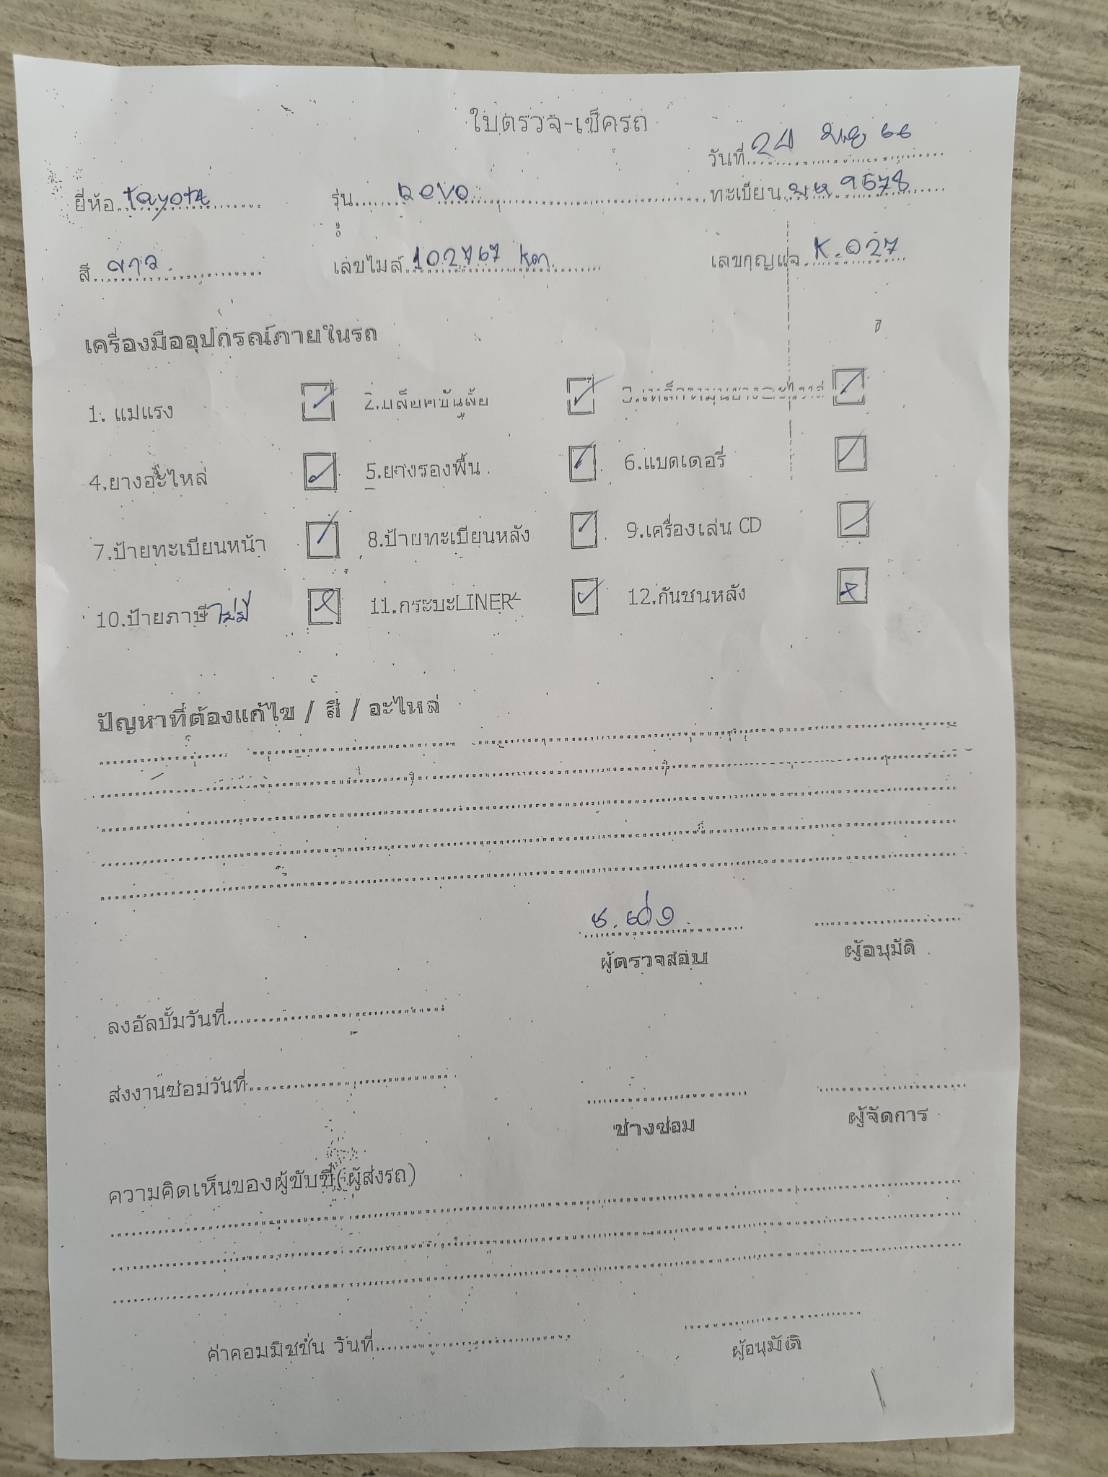 ใบตรวจ-เช็ครถ
วันที่ 24
ยี่ห้อ Tayota รุ่น Revo ทะเบียน 9578
สี ขาว เลขไมล์ 102767 km เลขกุญแจ K.027
เครื่องมืออุปกรณ์ภายในรถ
1. แม่แรง 2. 3.
4.ยางอะไหล่ 5.ยางรองพื้น 6.แบตเตอรี่
7.ป้ายทะเบียนหน้า 8.ป้ายทะเบียนหลัง 9.เครื่องเล่น CD
10.ป้ายภาษี ไม่มี 11.กระบะLINER 12.กันชนหลัง
ปัญหาที่ต้องแก้ไข / สี / อะไหล่
ผู้ตรวจสอบ ผู้อนุมัติ
ลงอัลบั้มวันที่
ส่งงานซ่อมวันที่
ช่างซ่อม ผู้จัดการ
ความคิดเห็นของผู้ขับขี่(ผู้ส่งรถ)
ค่าคอมมิชชั่น วันที่
ผู้อนุมัติ